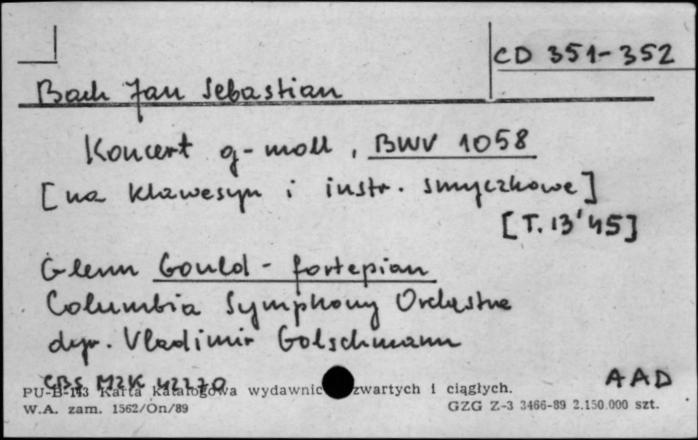 CD 351-352
Bach Jan Sebastian
Koncert g-moll, BWV 1058
[na klawesyn i instr. smyczkowe]
[T. 13'45]
Glenn Gould - fortepian
Columbia Symphony Orchestra
dyr. Vladimir Golschmann
CBS M2K 42270
AAD
PU-B-113 Karta katalogowa wydawnic zwartych i ciągłych.
W.A. zam. 1562/On/89
GZG Z-3 3466-89 2.150.000 szt.